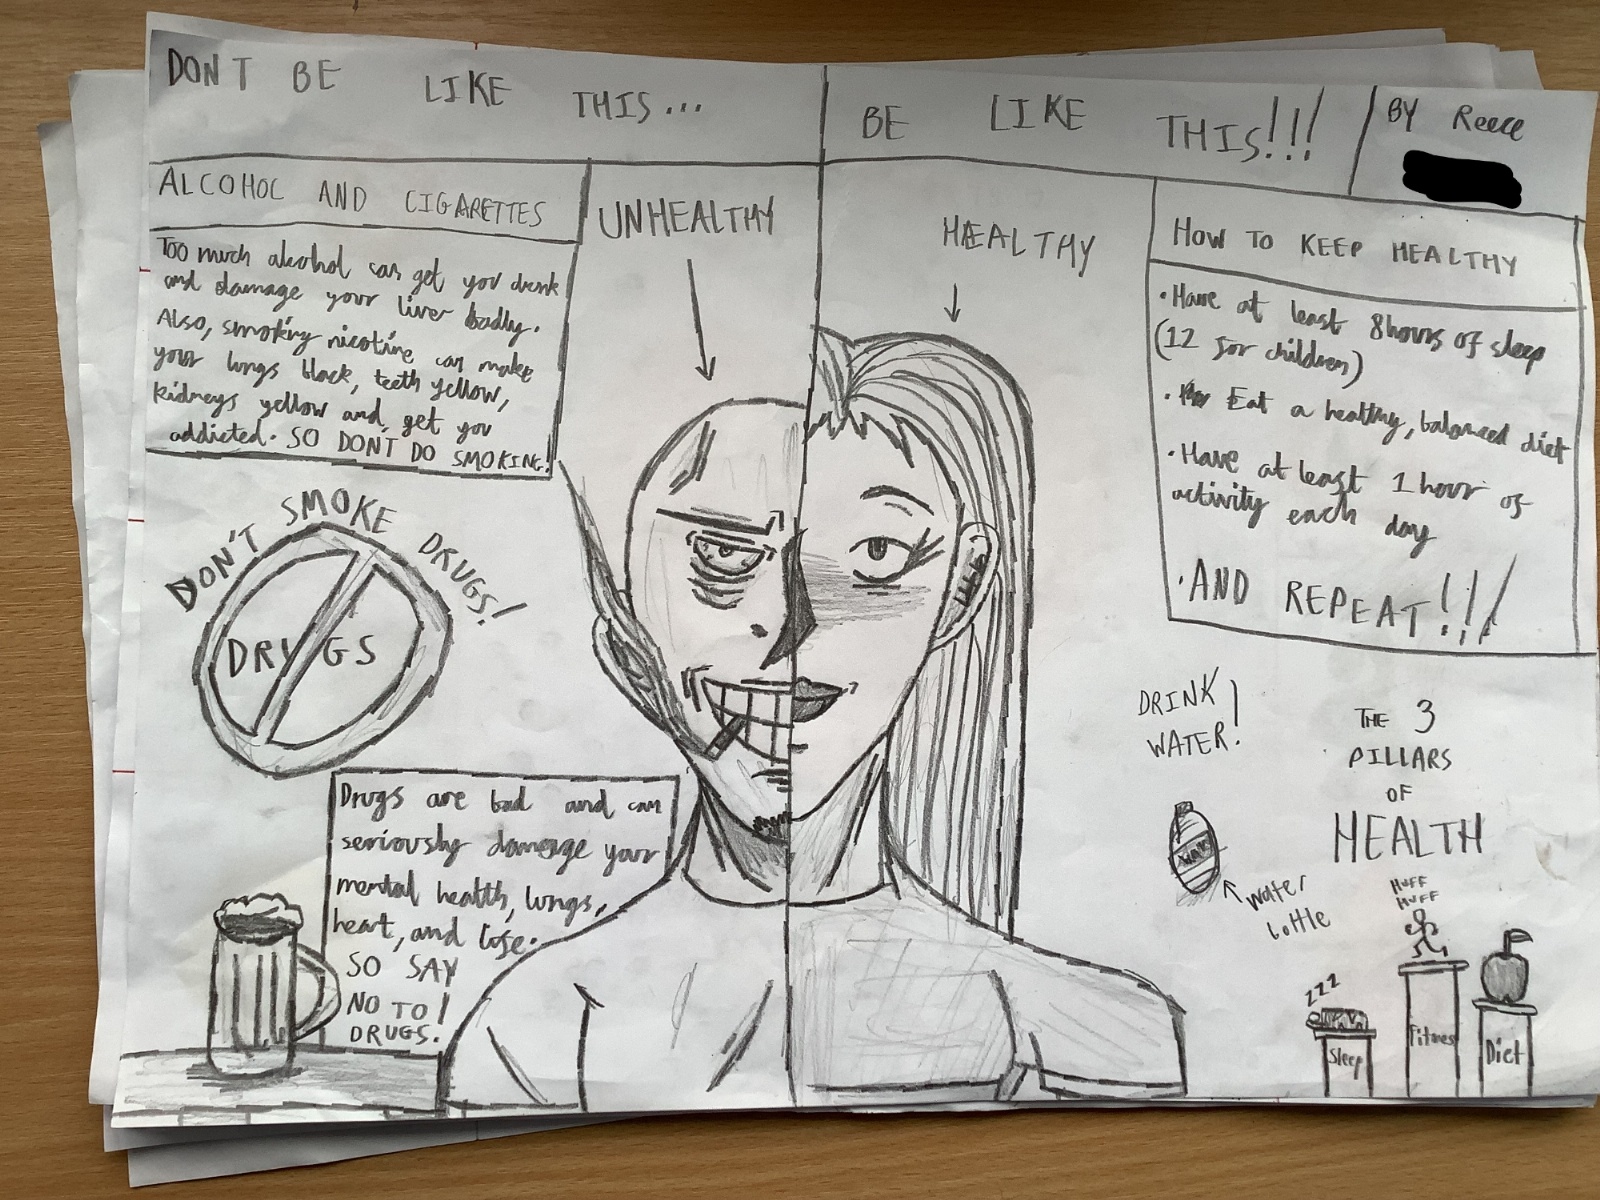 DON'T BE LIKE THIS...
BE LIKE THIS!!!
BY Reece
ALCOHOL AND CIGARETTES
Too much alcohol can get you drunk
and damage your liver badly.
Also, smoking nicotine can make
your lungs black, teeth yellow,
kidneys yellow and get you
addicted. SO DON'T DO SMOKING!
UNHEALTHY
HEALTHY
HOW TO KEEP HEALTHY
• Have at least 8 hours of sleep
(12 for children)
• Eat a healthy, balanced diet
• Have at least 1 hour of
activity each day
• AND REPEAT!!!
DON'T SMOKE DRUGS!
DRUGS
Drugs are bad and can
seriously damage your
mental health, lungs,
heart, and
SO SAY
NO TO
DRUGS!
DRINK
WATER!
water
bottle
THE 3
PILLARS
OF
HEALTH
HUFF
HUFF
zzz
Sleep
Fitness
Diet